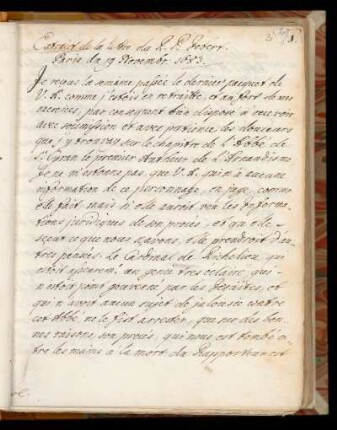 Extrait de la lettre du R. P. 
Paris du 19 Decembre 1683.
Je reçus la semaine passée le dernier pacquet de
V. R. comme j'estois en retraitte, et au fort de mes
exercices, par consequent bien disposé a recevoir
avec soumission et avec patience les douceurs
que j'y trouvay sur le chapitre de l'Abbé de
St. Cyran le premier Autheur de l'Jansenisme
Je ne m'estonne pas, que V. R. qui n'a aucune
information de ce personnage, en juge, comme
elle fait mais si elle auroit veu les Informa-
tions juridiques de son procés, et qu'elle
sceut ce que nous sçavons, elle prendroit d'au-
tres pensées. Le Cardinal de Richelieu, qui
estoit asseurement un genie tres eclairé, qui
n'estoit point gouverné par les Jesuites, et
qui n'avoit aucun sujet de jalousie contre
cet Abbé, ne le fist arrester, que sur des bon-
nes raisons, son procés, qui nous est tombé en-
tre les mains a la mort du Rapporteur est